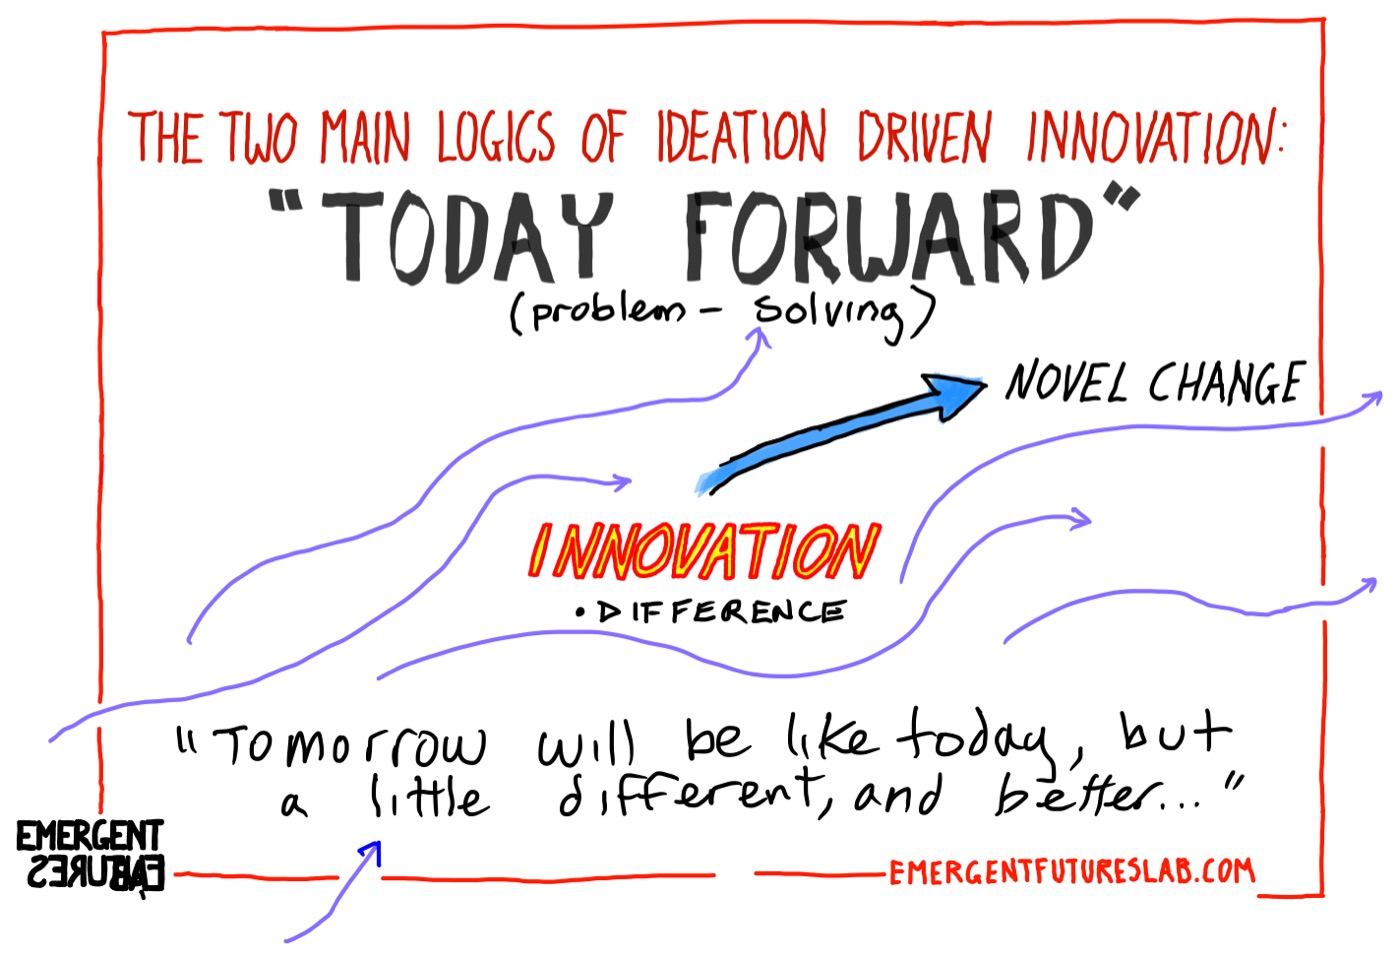 THE TWO MAIN LOGICS OF IDEATION DRIVEN INNOVATION:
"TODAY FORWARD"
(problem - solving)
NOVEL CHANGE
INNOVATION
• DIFFERENCE
"Tomorrow will be like today, but
a little different, and better..."
EMERGENT
FUTURES
LAB
EMERGENTFUTURESLAB.COM